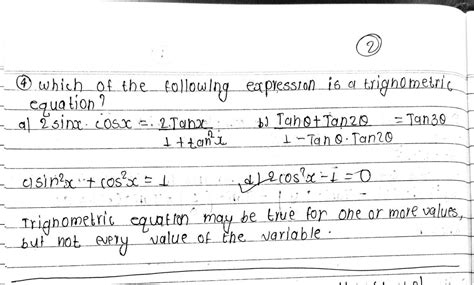 ②
④ which of the following expression is a trignometric
equation?
a) 2sinx. cosx = 2Tanx / 1+tan²x b) Tanθ+Tan2θ / 1-Tanθ.Tan2θ = Tan3θ
c) sin²x + cos²x = 1 d) 2cos²x - 1 = 0
Trignometric equation may be true for one or more values,
but not every value of the variable.